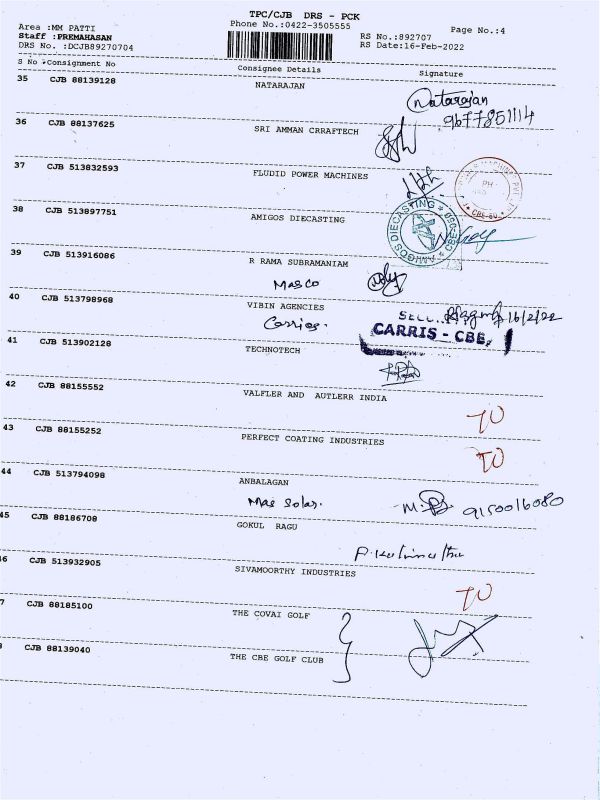 TPC/CJB DRS - PCK
Area :MM PATTI Phone No.:0422-3505555 Page No.:4
Staff :PREMAHASAN RS No.:892707
DRS No. :DCJB89270704 RS Date:16-Feb-2022
S No Consignment No Consignee Details Signature
35 CJB 88139128 NATARAJAN
Natarajan
9677851114
36 CJB 88137625 SRI AMMAN CRRAFTECH
37 CJB 513832593 FLUDID POWER MACHINES
38 CJB 513897751 AMIGOS DIECASTING
AMIGOS DIECASTING
39 CJB 513916086 R RAMA SUBRAMANIAM
Masco
40 CJB 513798968 VIBIN AGENCIES
Carries. 16/2/22
CARRIS - CBE.
41 CJB 513902128 TECHNOTECH
42 CJB 88155552 VALFLER AND AUTLERR INDIA
TO
43 CJB 88155252 PERFECT COATING INDUSTRIES
TO
44 CJB 513794098 ANBALAGAN
Mas Solar. 9150016080
45 CJB 88186708 GOKUL RAGU
46 CJB 513932905 SIVAMOORTHY INDUSTRIES
TO
7 CJB 88185100 THE COVAI GOLF
CJB 88139040 THE CBE GOLF CLUB